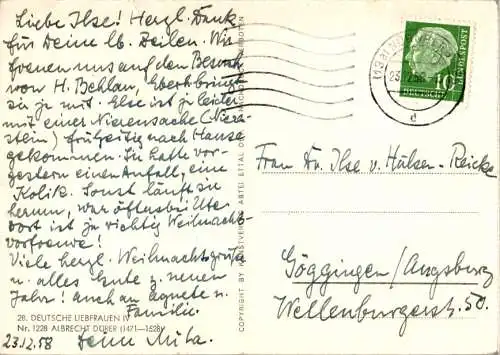 Liebe Ilse! Herzl. Dank
für Deine lb. Zeilen. Wir
freuen uns auf den Besuch
von H. Behlau, Eberh. bringt
sie ja mit. Else ist ja leider
mit einer Nierensache (Nieren-
stein) frühzeitig nach Hause
gekommen. Sie hatte vor-
gestern einen Anfall, eine
Kolik. Sonst läuft sie
herum, war öfters bei Ute
vort ist ja richtig Weihnachts-
vorfreude!
Viele herzl. Weihnachtsgrüße
u. alles Gute z. neuen
Jahr! auch an Agnete u.
Familie.
23.12.58 Deine Mita.
28. DEUTSCHE LIEBFRAUEN IV
Nr. 1228 ALBRECHT DÜRER (1471—1528)
COPYRIGHT BY KUNSTVERLAG ABTEI ETTAL
VERBOTEN
DEUTSCHE BUNDESPOST
10
23.12.58
d
Frau Dr. Ilse v. Hülsen-Reicke
Göggingen/Augsburg
Wellenburgerstr. 50.